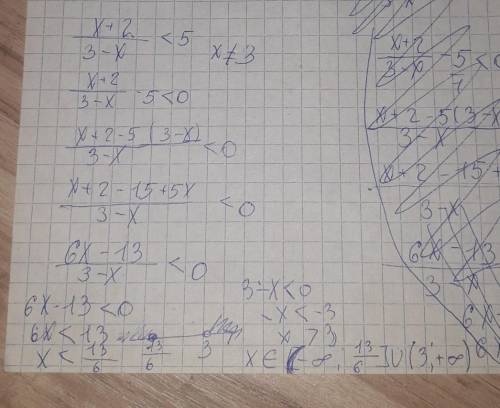 x+2 / 3-x < 5 x≠3
x+2 / 3-x -5<0
x+2-5(3-x) / 3-x <0
x+2-15+5x / 3-x <0
6x-13 / 3-x <0
6x-13<0 3-x<0
6x<13 -x<-3
x<13/6 13/6 3 x>3
x∈(-∞; 13/6]∪(3;+∞)
x+2 / 3-x -5/1 <0
x+2-5(3-x / 3-x
x+2-15+ / 3-x
6x-13 / 3-x
6x
6